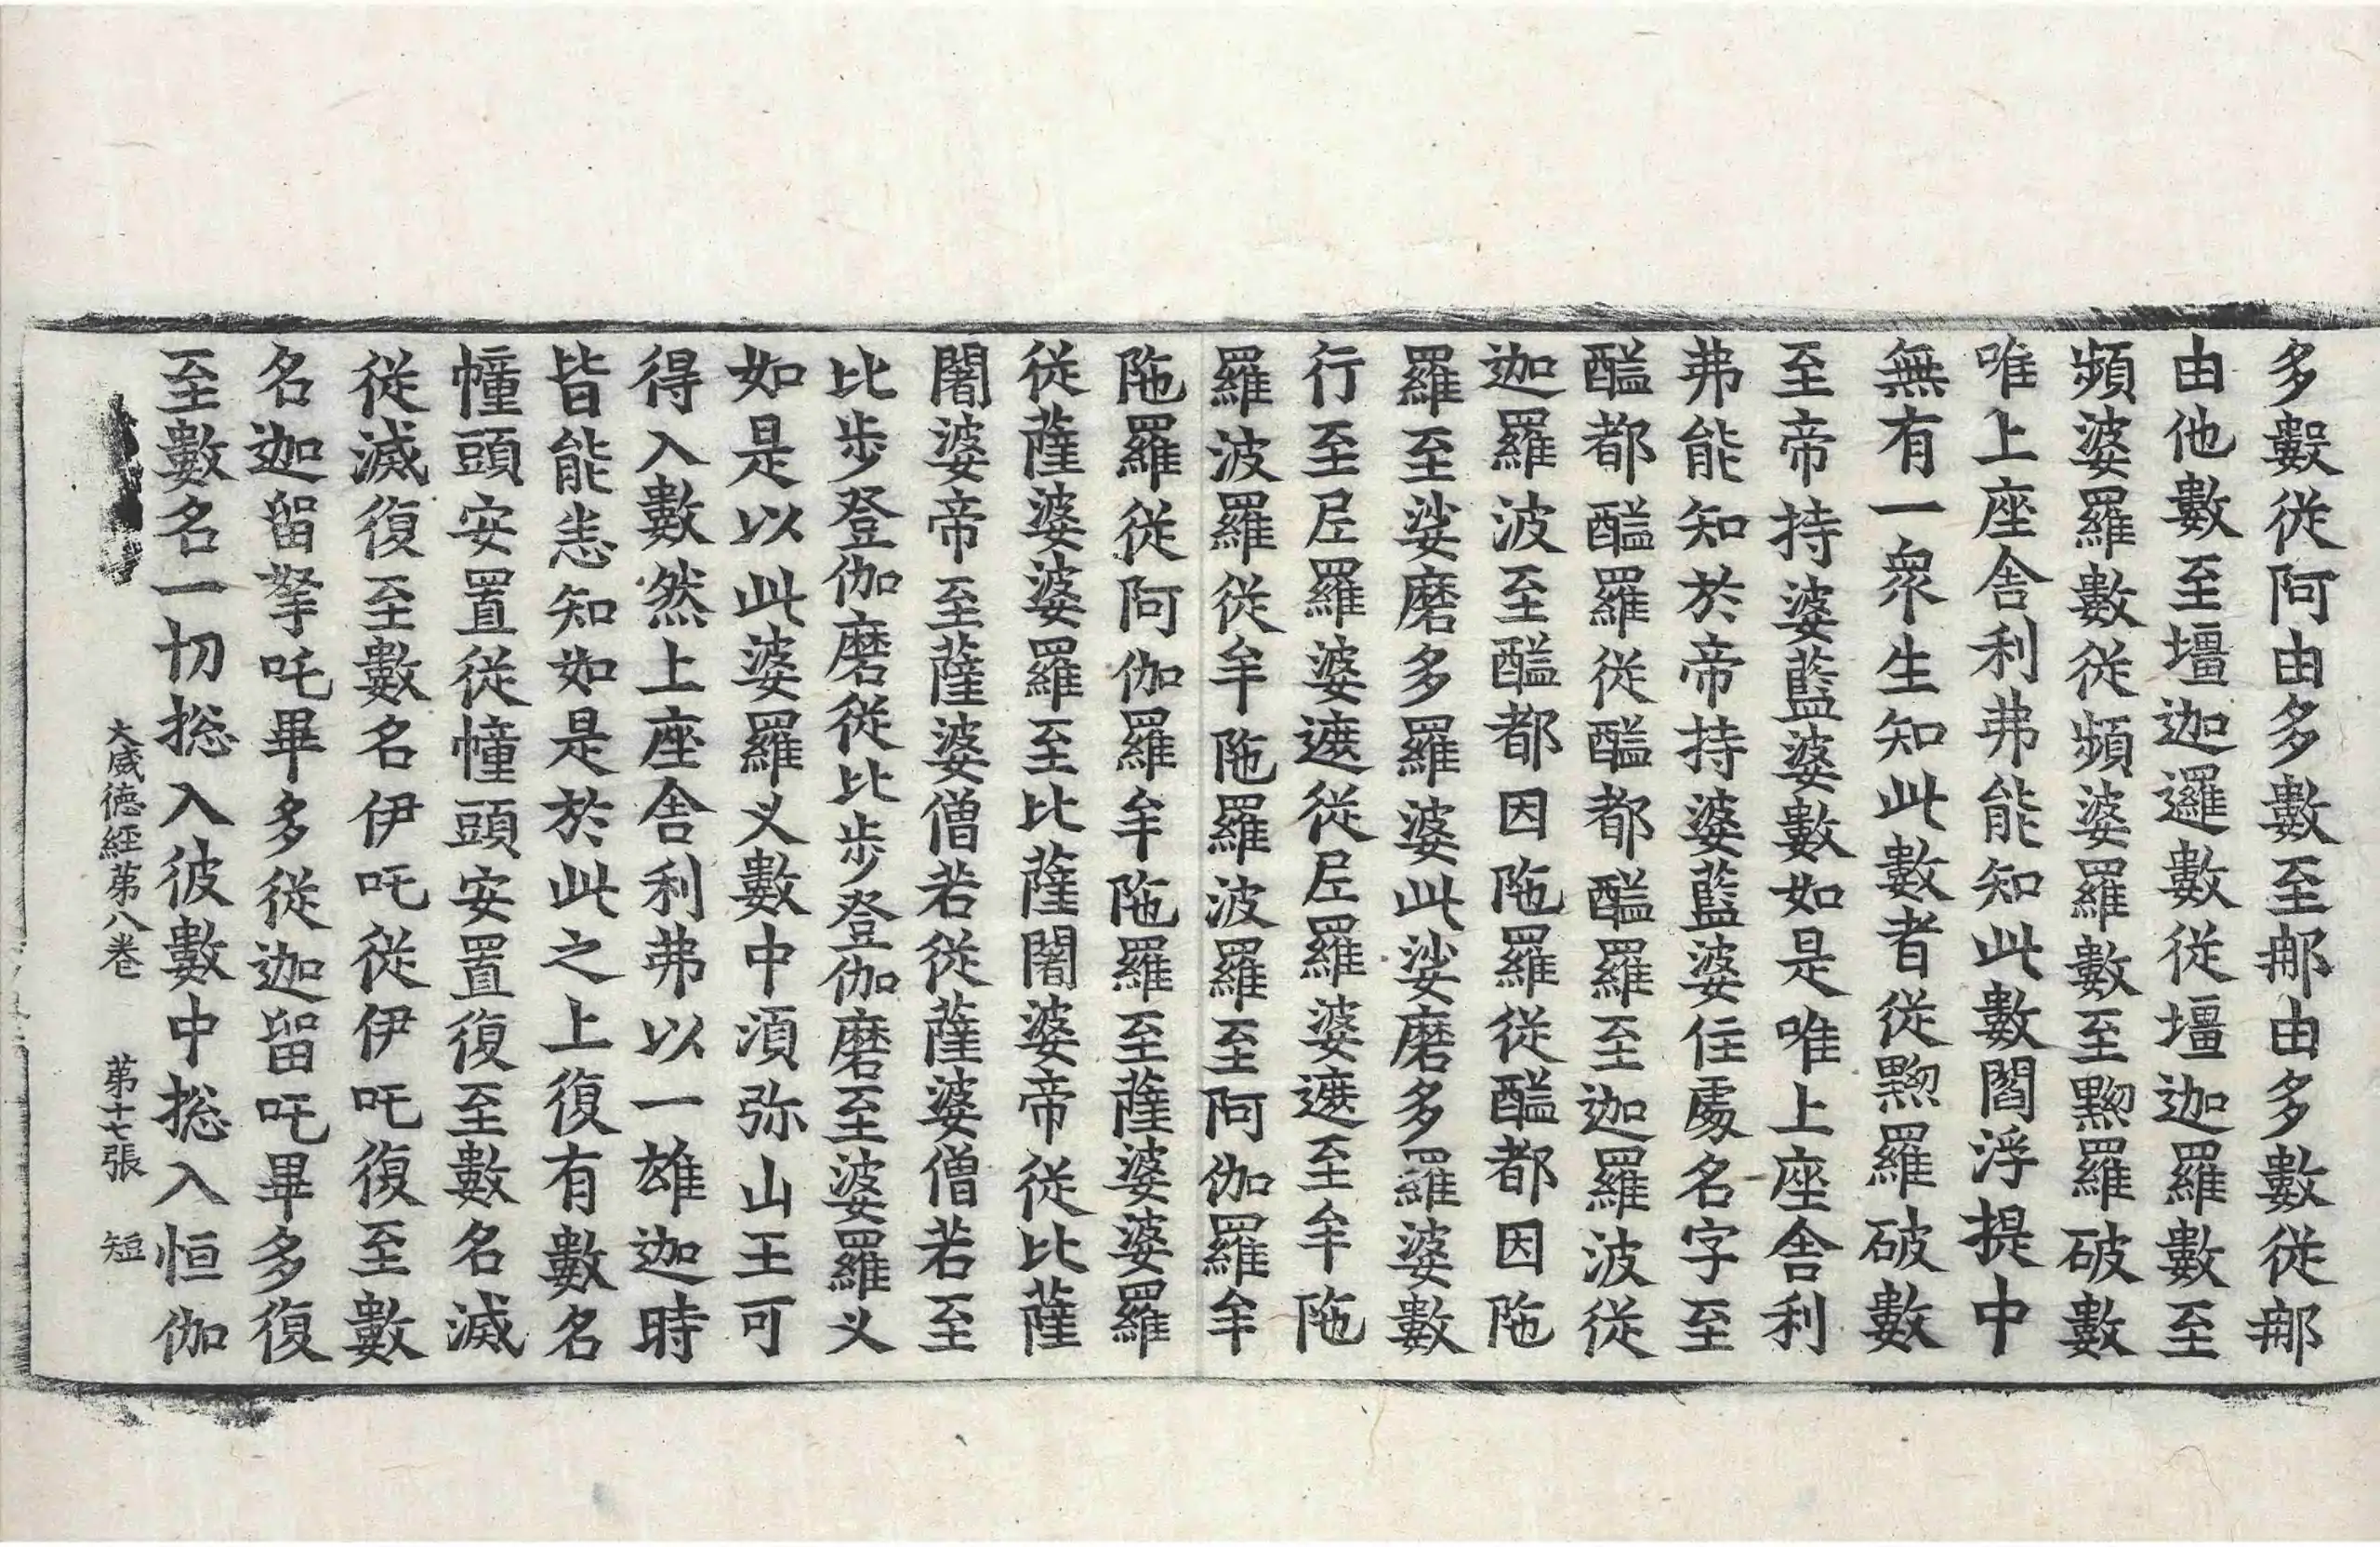 多數從阿由多數至那由多數從那
由他數至壃迦邏數從壃迦羅數至
頻婆羅數從頻婆羅數至㸃羅破數
唯上座舍利弗能知此數閻浮提中
無有一衆生知此數者從㸃羅破數
至帝持婆藍婆數如是唯上座舍利
弗能知於帝持婆藍婆住處名字至
醯都醯羅從醯都醯羅至迦羅波從
迦羅波至醯都因陁羅從醯都因陁
羅至娑磨多羅婆此娑磨多羅婆數
行至𡰱羅婆遮從𡰱羅婆遮至牟陁
羅波羅從牟陁羅波羅至阿伽羅牟
陁羅從阿伽羅牟陁羅至薩婆婆羅
從薩婆婆羅至比薩闍婆帝從比薩
闍婆帝至薩婆僧若從薩婆僧若至
比步登伽磨從比步登伽磨至婆羅乂
如是以此婆羅乂數中湏弥山王可
得入數然上座舍利弗以一雄迦時
皆能㤪知如是於此之上復有數名
幢頭安置從幢頭安置復至數名滅
從滅復至數名伊吒從伊吒復至數
名迦留拏吒畢多從迦留吒畢多復
至數名一切捴入彼數中捴入恒伽
大威德經第八卷　第十七張　短